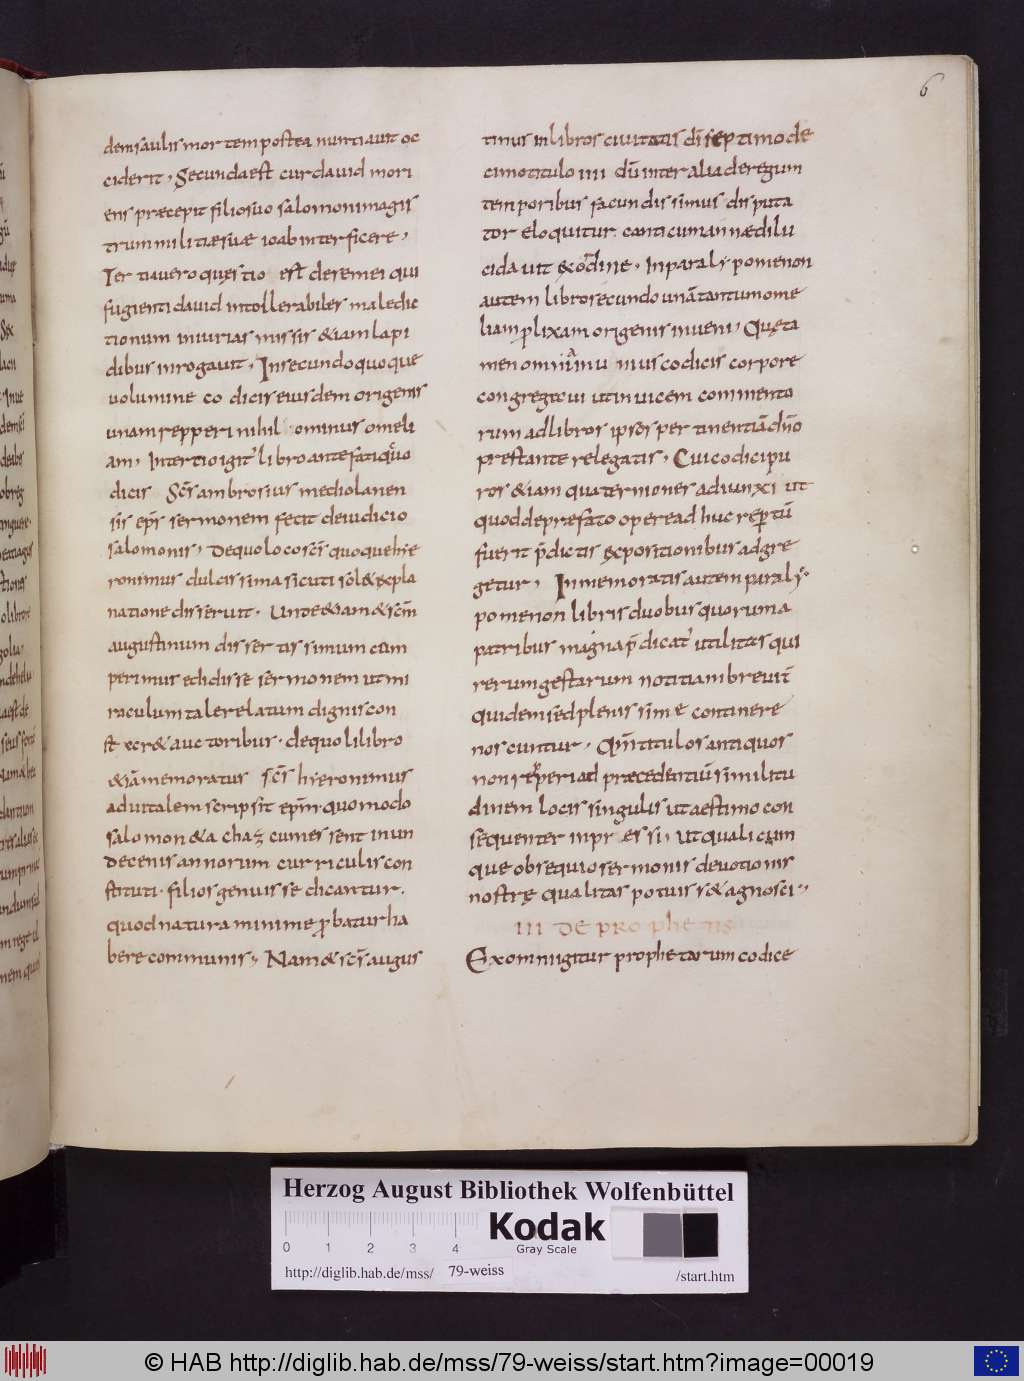 6
dem saulis mortem postea nuntiavit oc
ciderit, Secunda est cur david mori
ens præcepit filio suo salomoni magis
trum militiæ suæ ioab interficere,
Tertia vero quęstio est de semei qui
fugienti david intollerabiles maledic
tionum iniurias missis &iam lapi
dibus inrogavit, In secundo quoque
volumine codicis eiusdem origenis
unam repperi nihilominus omeli
am, In tertio igit libro antefati quo
dicis Scs ambrosius mediolanen
sis eps sermonem fecit de iudicio
salomonis, De quo loco scs quoque hie
ronimus dulcissima sicuti sol& expla
natione disseruit. Unde &iam & scm
augustinum dissertissimum com
perimus edidisse sermonem ut mi
raculum tale relatum dignis con
st xcr& auctoribus. de quoli libro
&iā memoratus scs hieronimus
ad vitalem scripsit epm. quomodo
salomon & achaz cum essent in un
decenis annorum curriculis con
stituti. filios genuisse dicantur.
quod natura minime pbatur ha
bere communis, Nam & scs augus
tinus in libros civitatis di septimo de
cimo titulo IIII dum inter alia de regum
temporibus facundissimus disputa
tor eloquitur canticum annæ dilu
cida vit exodine. In paralypomenon
autem libro secundo unā tantum ome
liam plixam origenis inveni, Quę ta
men omnia in unius codicis corpore
congregavi ut in vicem commento
rum ad libros ipsos pertinentiā dno
prestante relegatis, Cui codici pu
ros &iam quaterniones adiunxi ut
quod de prefato opere adhuc reptū
fuerit pdictis expositionibus adgre
getur, In memoratis autem paraly
pomenon libris duobus quorum a
patribus magna pdicat utilitas qui
rerum gestarum notitiam brevit
quidem sed plenissime continere
noscuntur, Qm titulos antiquos
non repperi ad præcedentiū similitu
dinem locis singulis ut aestimo con
sequenter inpressi, ut qualicum
que obsequio sermonis devotionis
nostrę qualitas potuiss& agnosci,
III DE PROPHETIS
Ex omni igitur prophetarum codice
Herzog August Bibliothek Wolfenbüttel
0 1 2 3 4
Kodak
Gray Scale
http://diglib.hab.de/mss/ 79-weiss /start.htm
© HAB http://diglib.hab.de/mss/79-weiss/start.htm?image=00019